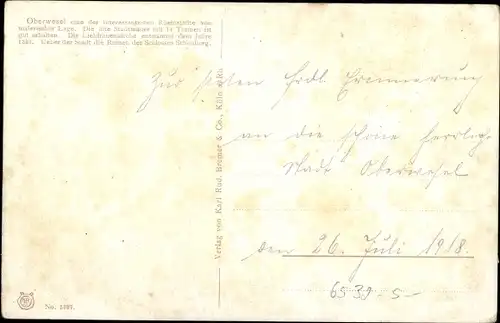 Oberwesel eine der interessantesten Rheinstädte von
malerischer Lage. Die alte Stadtmauer mit 14 Türmen ist
gut erhalten. Die Liebfrauenkirche entstammt dem Jahre
Ueber der Stadt die Ruinen des Schlosses Schönburg.
Verlag von Karl Rud. Bremer & Co., Köln a. Rh.
Zur steten Erinnerung
an die schöne
Stadt Oberwesel
den 26. Juli 1918.
6539-S-